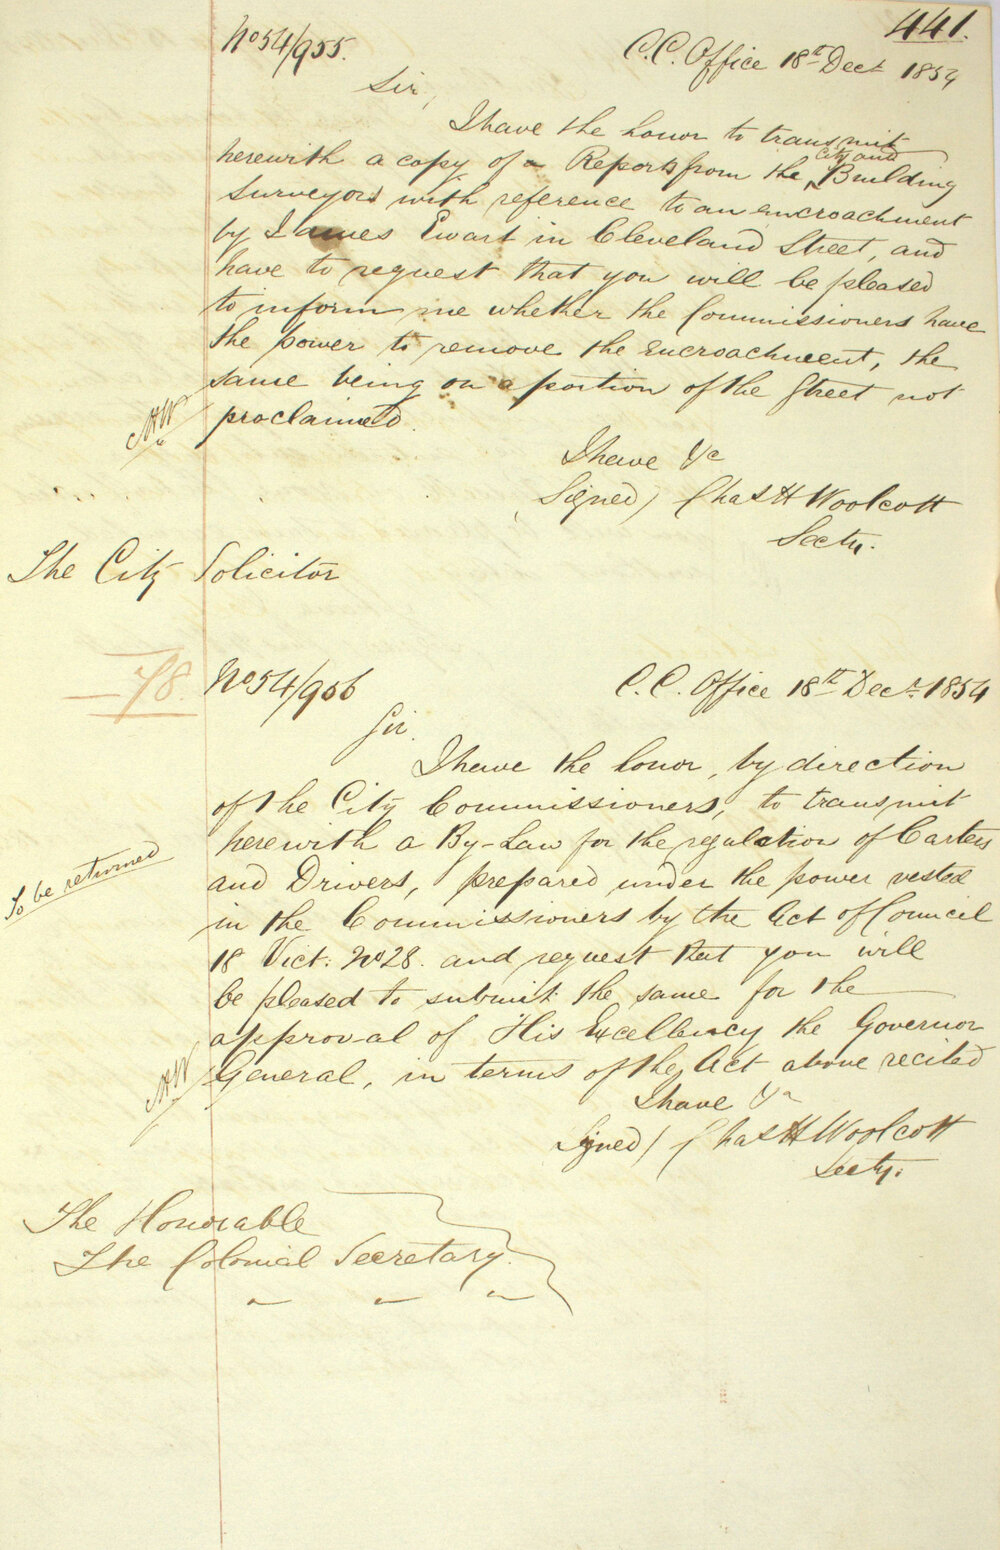 441.
No 54/955.
C.C. Office 18th Decr 1854
Sir,
I have the honor to transmit
herewith a copy of a Reports from the City and Building
Surveyors with reference to an encroachment
by James Ewart in Cleveland Street, and
have to request that you will be pleased
to inform me whether the Commissioners have
the power to remove the encroachment, the
same being on a portion of the Street not
proclaimed.
I have &c
Signed) Chas H Woolcott
Secty.
The City Solicitor
78.
No 54/956
C.C. Office 18th Decr. 1854
Sir.
I have the honor, by direction
of the City Commissioners, to transmit
herewith a By-Law for the regulation of Carters
and Drivers, prepared under the power vested
To be returned
in the Commissioners by the Act of Council
18 Vict: No 28. and request that you will
be pleased to submit the same for the
approval of His Excellency the Governor
General, in terms of the Act above recited
I have &c
Signed) Chas H Woolcott
Secty.
The Honorable
The Colonial Secretary.